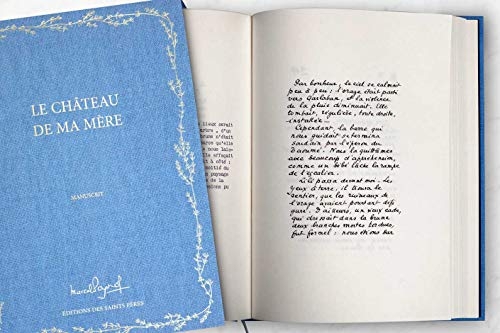 LE CHÂTEAU
DE MA MÈRE
MANUSCRIT
Marcel Pagnol
ÉDITIONS DES SAINTS PÈRES
Par bonheur, le ciel se calmait
peu à peu : l'orage était parti
vers Garlaban, et la violence
de la pluie diminuait. Elle
tombait, régulière, toute droite,
installée...
Cependant, la barre qui
nous guidait se termina
soudain par l'éperon du
Taoumé. Nous la quittâmes
avec beaucoup d'appréhension,
comme un bébé lâche la rampe
de l'escalier.
Lili passa devant moi. Les
yeux à terre, il trouva le
sentier, que les ruisseaux de
l'orage avaient pourtant défi
guré. D'ailleurs, un vieux cade,
qui dressait dans la brume
deux branches mortes tordues,
fut formel : nous étions sur